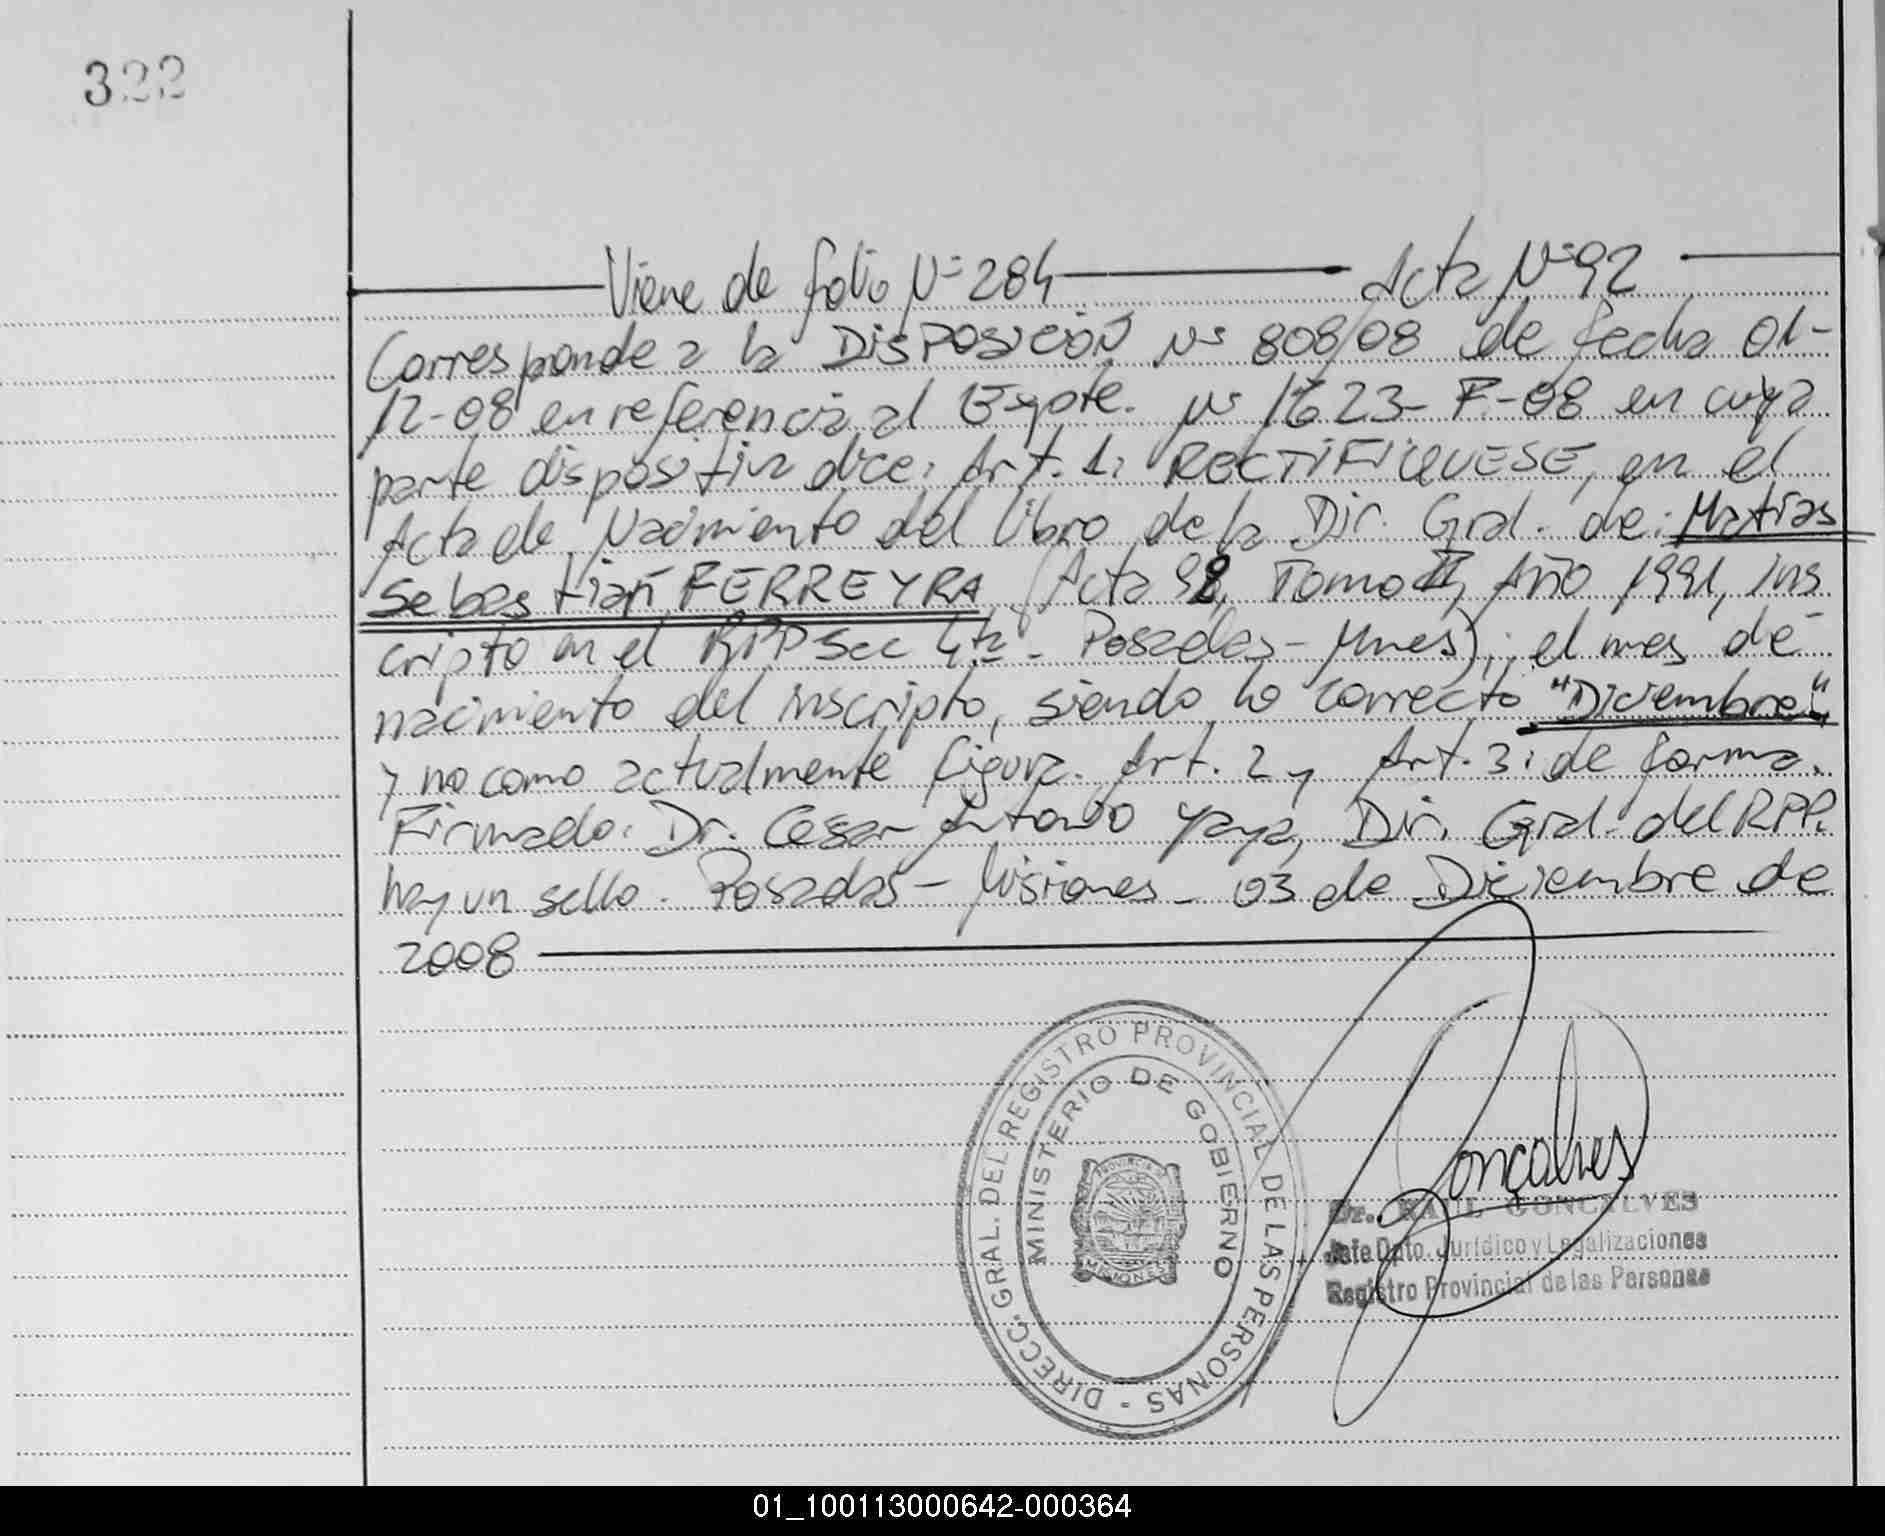 322
Viene de folio Nº 284 Acta Nº 92
Corresponde a la DISPOSICIÓN Nº 808/08 de fecha 01-
12-08 en referencia al Expte. Nº 1623- F-08 en cuya
parte dispositiva dice: Art. 1: RECTIFIQUESE, en el
Acta de Nacimiento del libro de la Dir. Gral. de: Matias
Sebastian FERREYRA (Acta 92, Tomo II, Año 1991, ins
cripto en el RPP Sec 4ta - Posadas - Mnes); el mes de
nacimiento del inscripto, siendo lo correcto "Diciembre"
y no como actualmente figura. Art. 2 y Art. 3: de forma.
Firmado: Dr. Cesar Antonio Yaya, Dir. Gral. del RPP.
hay un sello. Posadas - Misiones - 03 de Diciembre de
2008
DIRECC. GRAL. DEL REGISTRO PROVINCIAL DE LAS PERSONAS -
MINISTERIO DE GOBIERNO
PROVINCIA
MISIONES
Gonçalves
Dr. RAUL GONCALVES
Jefe Dpto. Jurídico y Legalizaciones
Registro Provincial de las Personas
01_100113000642-000364